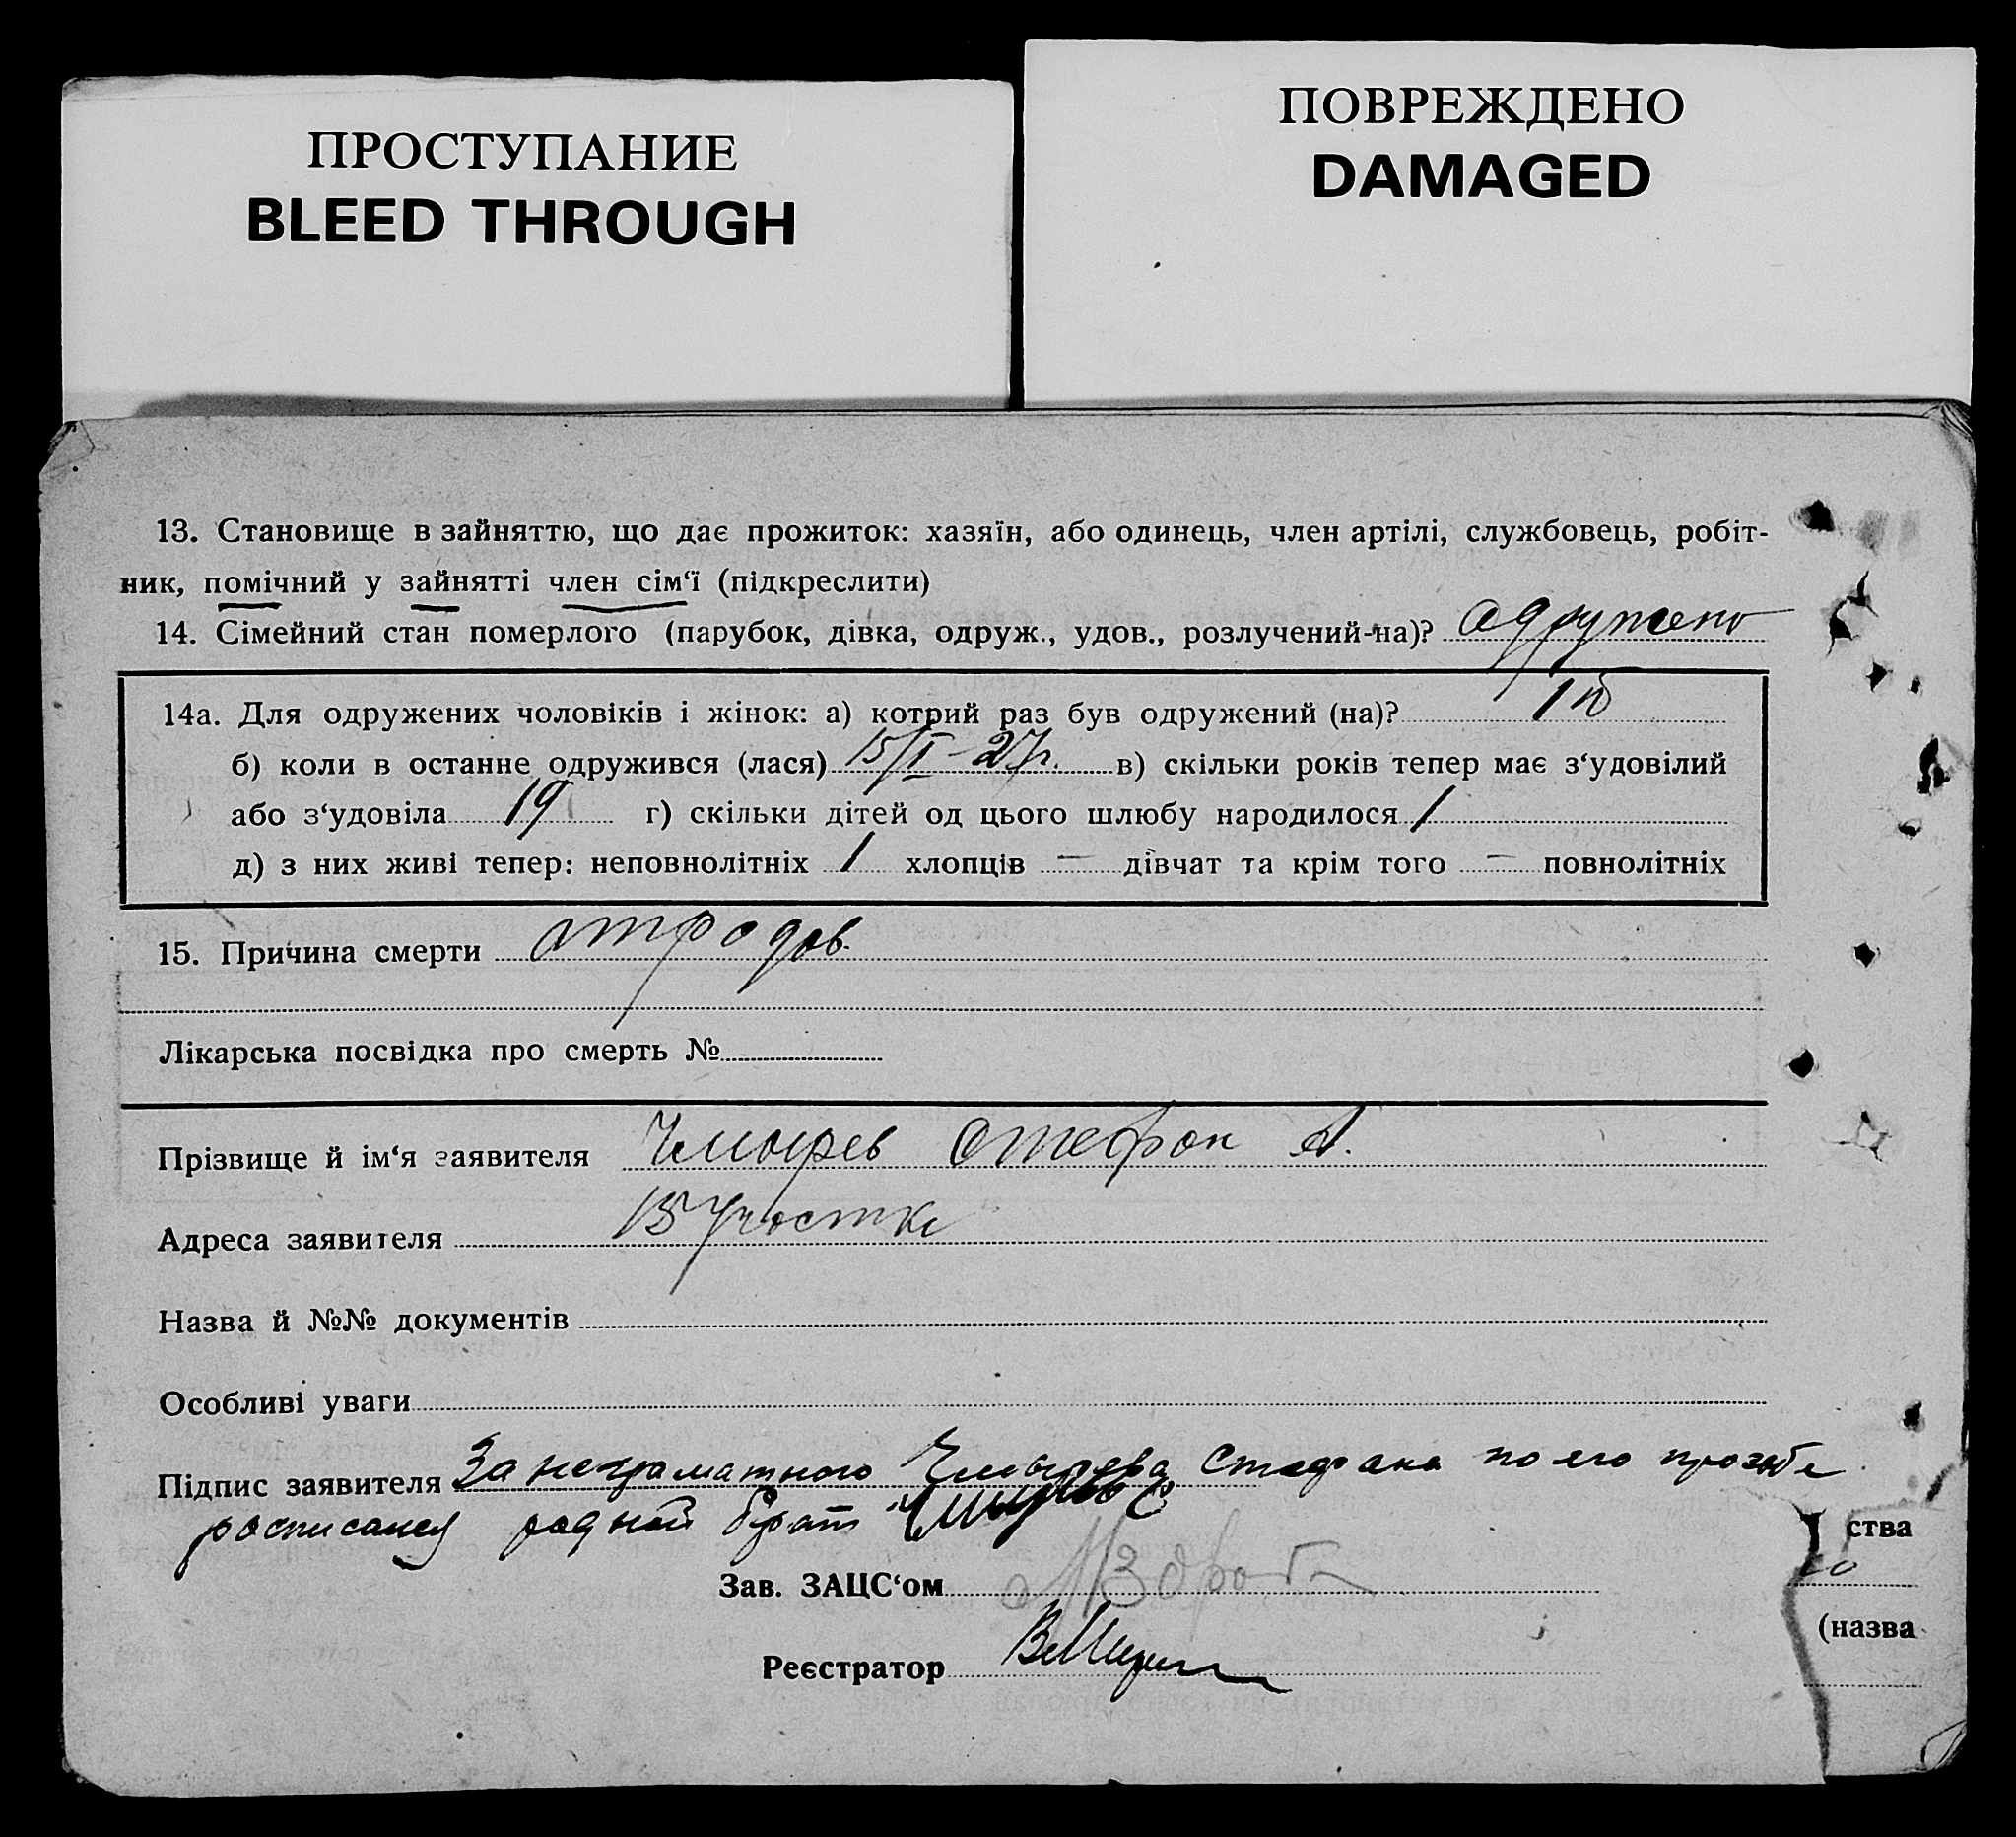 ПРОСТУПАНИЕ
BLEED THROUGH
ПОВРЕЖДЕНО
DAMAGED
13. Становище в зайняттю, що дає прожиток: хазяїн, або одинець, член артілі, службовець, робіт-
ник, помічний у зайнятті член сім‘ї (підкреслити)
14. Сімейний стан померлого (парубок, дівка, одруж., удов., розлучений-на)? одружено
14а. Для одружених чоловіків і жінок: а) котрий раз був одружений (на)? 1й
б) коли в останне одружився (лася) 15/I-27г. в) скільки років тепер має з‘удовілий
або з‘удовіла 19 г) скільки дітей од цього шлюбу народилося 1
д) з них живі тепер: неповнолітніх 1 хлопців — дівчат та крім того — повнолітніх
15. Причина смерти от родов
Лікарська посвідка про смерть №
Прізвище й ім‘я заявителя Чмырев Стефан А.
Адреса заявителя 15 участка
Назва й №№ документів
Особливі уваги
Підпис заявителя За неграматного Чмырева Стефана по его прозбе
росписался родной брат Чмырев С
ства
Зав. ЗАЦС‘ом
(назва
Реєстратор